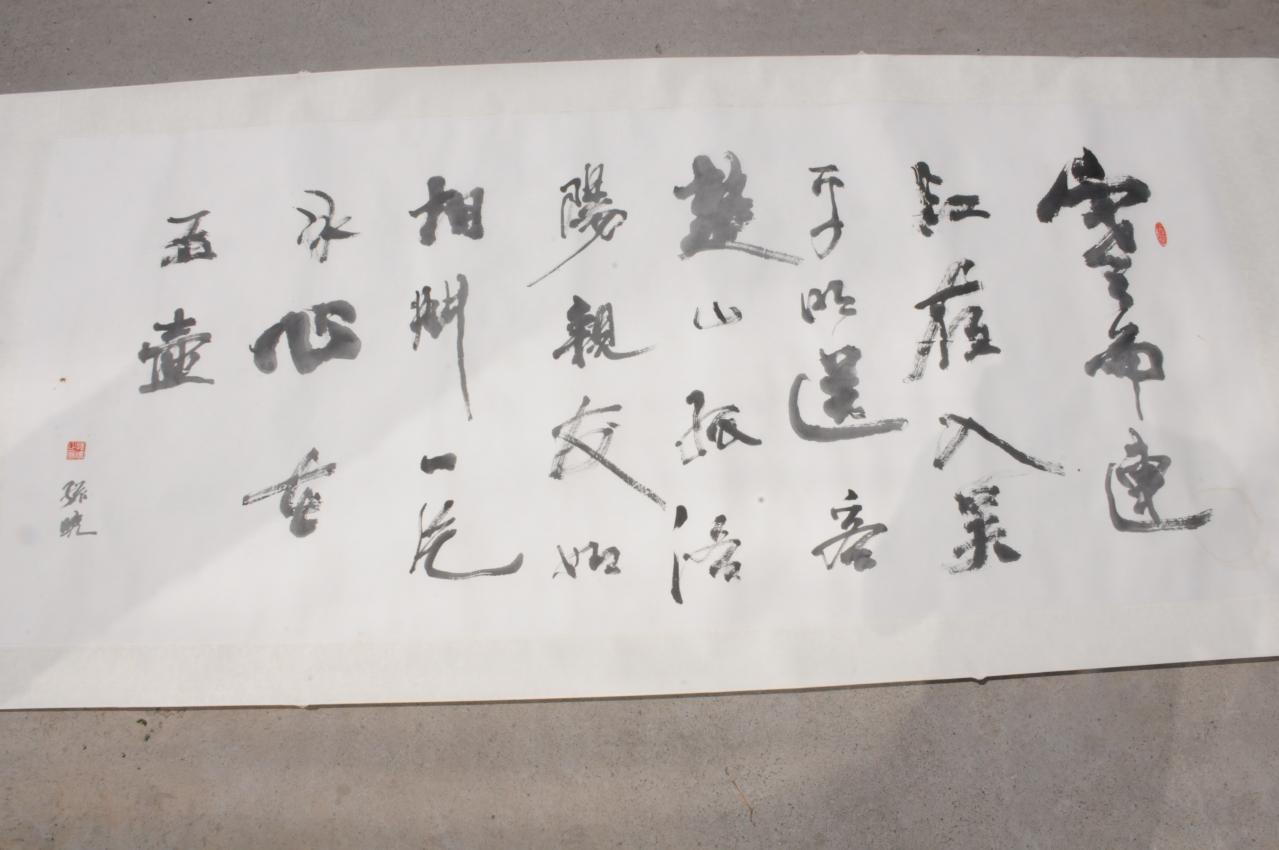 寒雨連
江夜入吳
平明送客
楚山孤洛
陽親友如
相問一片
冰心在
玉壺
張